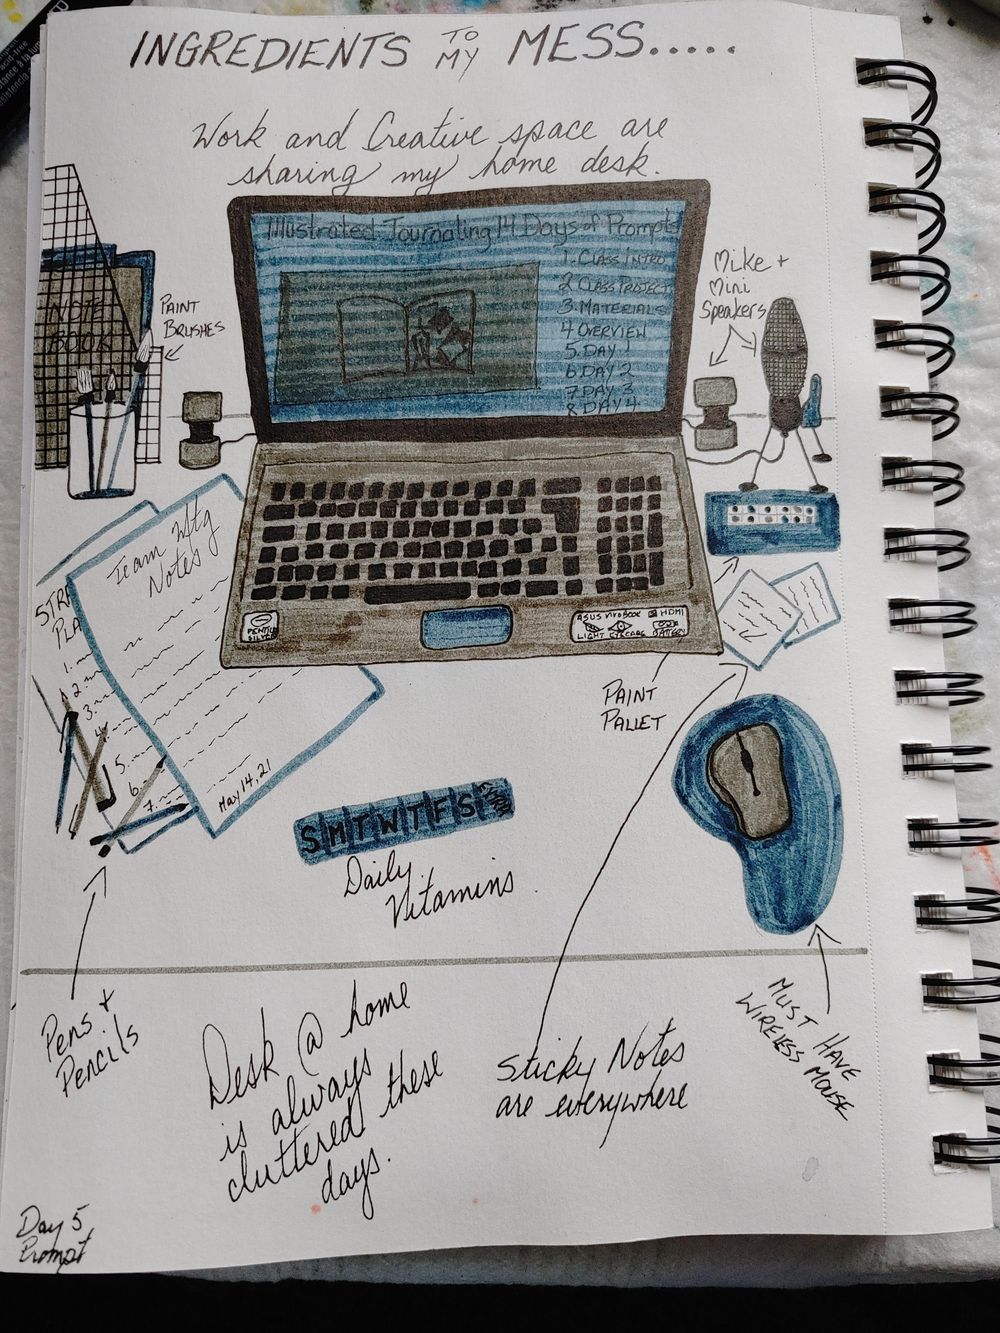 INGREDIENTS TO MY MESS.....
Work and Creative space are
sharing my home desk.
Illustrated Journaling 14 Days of Prompts
1. CLASS INTRO
2 CLASS PROJECT
3. MATERIALS
4 OVERVIEW
5. DAY 1
6. DAY 2
7 DAY 3
8 DAY 4
Mike +
Mini
Speakers
NOTE
BOOK
PAINT
BRUSHES
Team Mtg
Notes
STR
PLA
1.
2.
3.
4.
5.
6.
7.
May 14, 21
PENTIUM
ASUS VIVOBOOK HDMI
LIGHT EYECARE BATTERY
PAINT
PALLET
S M T W T F S
Daily
Vitamins
Pens +
Pencils
Desk @ home
is always
cluttered these
days.
Sticky Notes
are everywhere
MUST HAVE
WIRELESS MOUSE
Day 5
Prompt